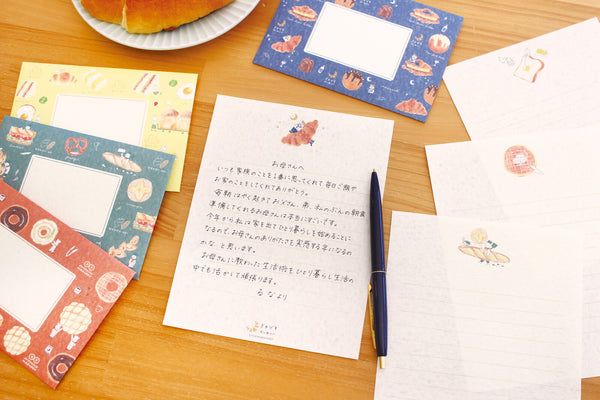 お母さんへ
いつも家族のことを1番に思ってくれて毎日ご飯や
お家のことをしてくれてありがとう。
毎朝はやく起きてお父さん、弟、私のぶんの朝食
準備してくれるお母さんは本当にすごいです。
今年から私は家を出てひとり暮らしを始めることに
なるので、お母さんのありがたさを実感する年になるの
かな、と思います。
お母さんに教わった生活術をひとり暮らし生活の
中でも活かして頑張ります。
るなより